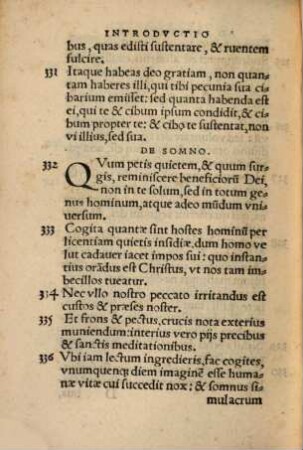 INTRODVCTIO
bus, quas edisti sustentare, & ruentem
fulcire.
331 Itaque habeas deo gratiam, non quan
tam haberes illi, qui tibi pecunia sua ci
barium emisset: sed quanta habenda est
ei, qui te & cibum ipsum condidit, & ci
bum propter te: & cibo te sustentat, non
vi illius, sed sua.
DE SOMNO.
332 QVum petis quietem, & quum sur
gis, reminiscere beneficiorũ Dei,
non in te solum, sed in totum ge
nus hominum, atque adeo mũdum vni
uersum.
333 Cogita quantæ sint hostes hominũ per
licentiam quietis insidiæ, dum homo ve
lut cadauer iacet impos sui: quo instan
tius orãdus est Christus, vt nos tam im
becillos tueatur.
334 Nec vllo nostro peccato irritandus est
custos & præses noster.
335 Et frons & pectus, crucis nota exterius
muniendum: interius vero pijs precibus
& sanctis meditationibus.
336 Vbi iam lectum ingredieris, fac cogites,
vnumquenqui diem imaginẽ esse huma
næ vitæ cui succedit nox: & somnus si
mulacrum